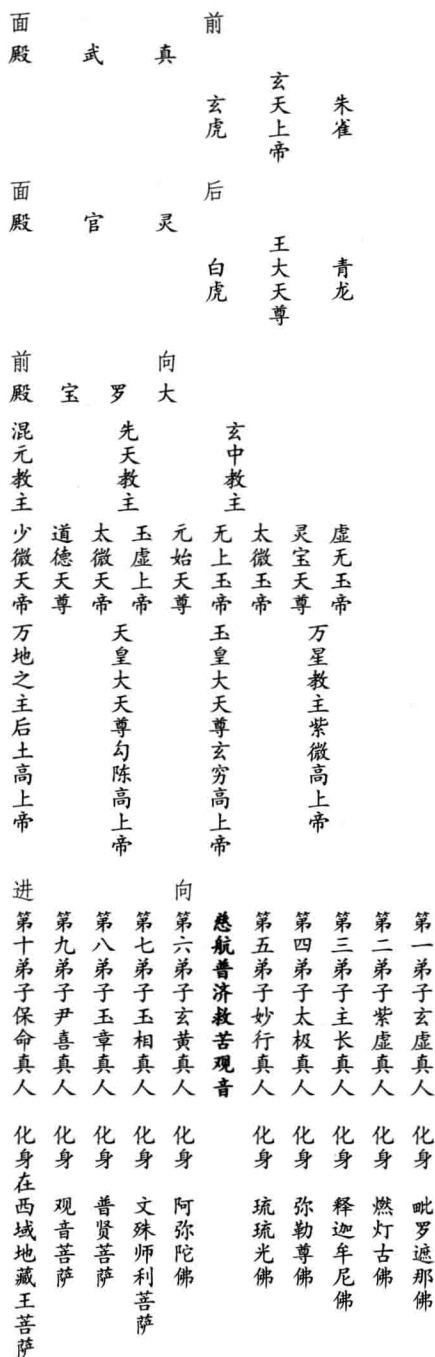 前面
真武殿
朱雀
玄天上帝
玄虎
后面
灵官殿
青龙
王大天尊
白虎
向前
大罗宝殿
玄中教主
先天教主
混元教主
虚无玉帝
灵宝天尊
太微玉帝
无上玉帝
元始天尊
玉虚上帝
太微天帝
道德天尊
少微天帝
万星教主紫微高上帝
玉皇大天尊玄穷高上帝
天皇大天尊勾陈高上帝
万地之主后土高上帝
向进
第一弟子玄虚真人 化身 毗罗遮那佛
第二弟子紫虚真人 化身 燃灯古佛
第三弟子主长真人 化身 释迦牟尼佛
第四弟子太极真人 化身 弥勒尊佛
第五弟子妙行真人 化身 琉琉光佛
慈航普济救苦观音
第六弟子玄黄真人 化身 阿弥陀佛
第七弟子玉相真人 化身 文殊师利菩萨
第八弟子玉章真人 化身 普贤菩萨
第九弟子尹喜真人 化身 观音菩萨
第十弟子保命真人 化身在西域地藏王菩萨